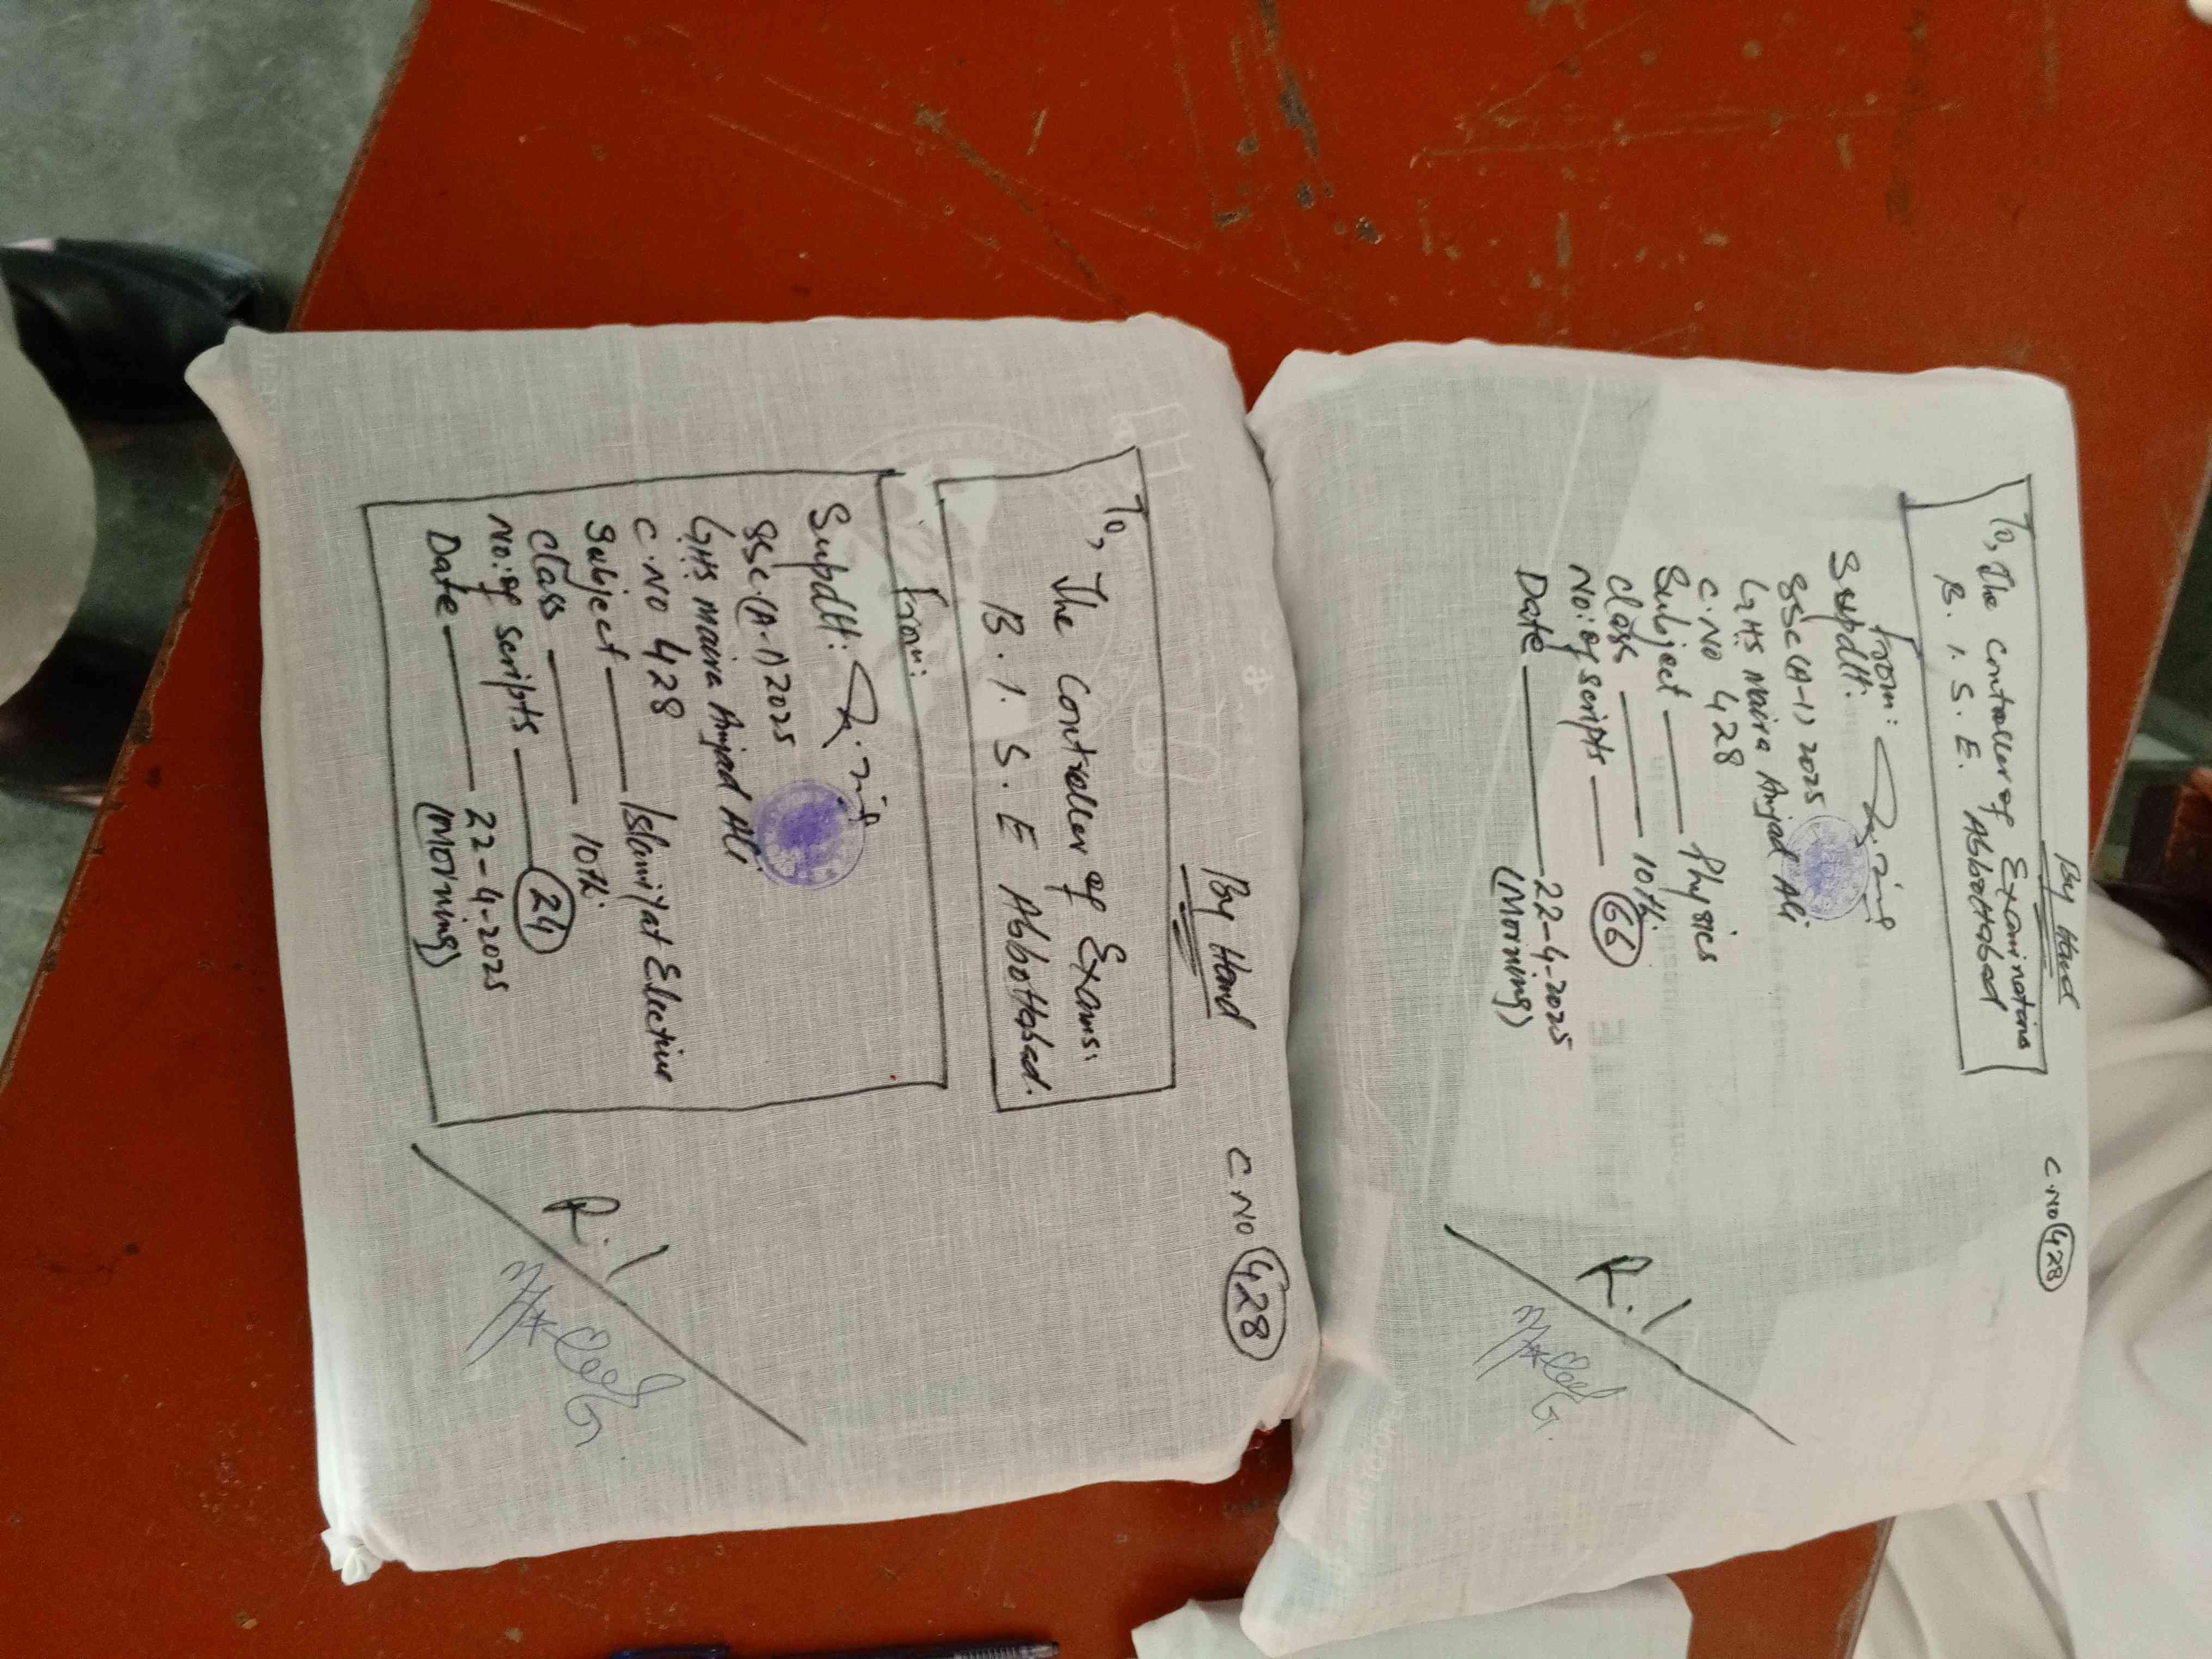 By Hand
C.NO 428
To, The Controller of Examinations
B. I. S. E. Abbottabad
From:
Supdtt:
SSC (A-1) 2025
GHS Maira Amjad Ali
C.No 428
Subject — Physics
Class — 10th
No: of scripts — 66
Date — 22-4-2025
(Morning)
R.I
By Hand
C.NO 428
To, The Controller of Exams:
B. I. S. E Abbottabad.
From:
Supdtt:
SSC (A-1) 2025
GHS Maira Amjad Ali
C.NO 428
Subject — Islamiyat Elective
Class — 10th
No: of scripts — 24
Date — 22-4-2025
(Morning)
R.I